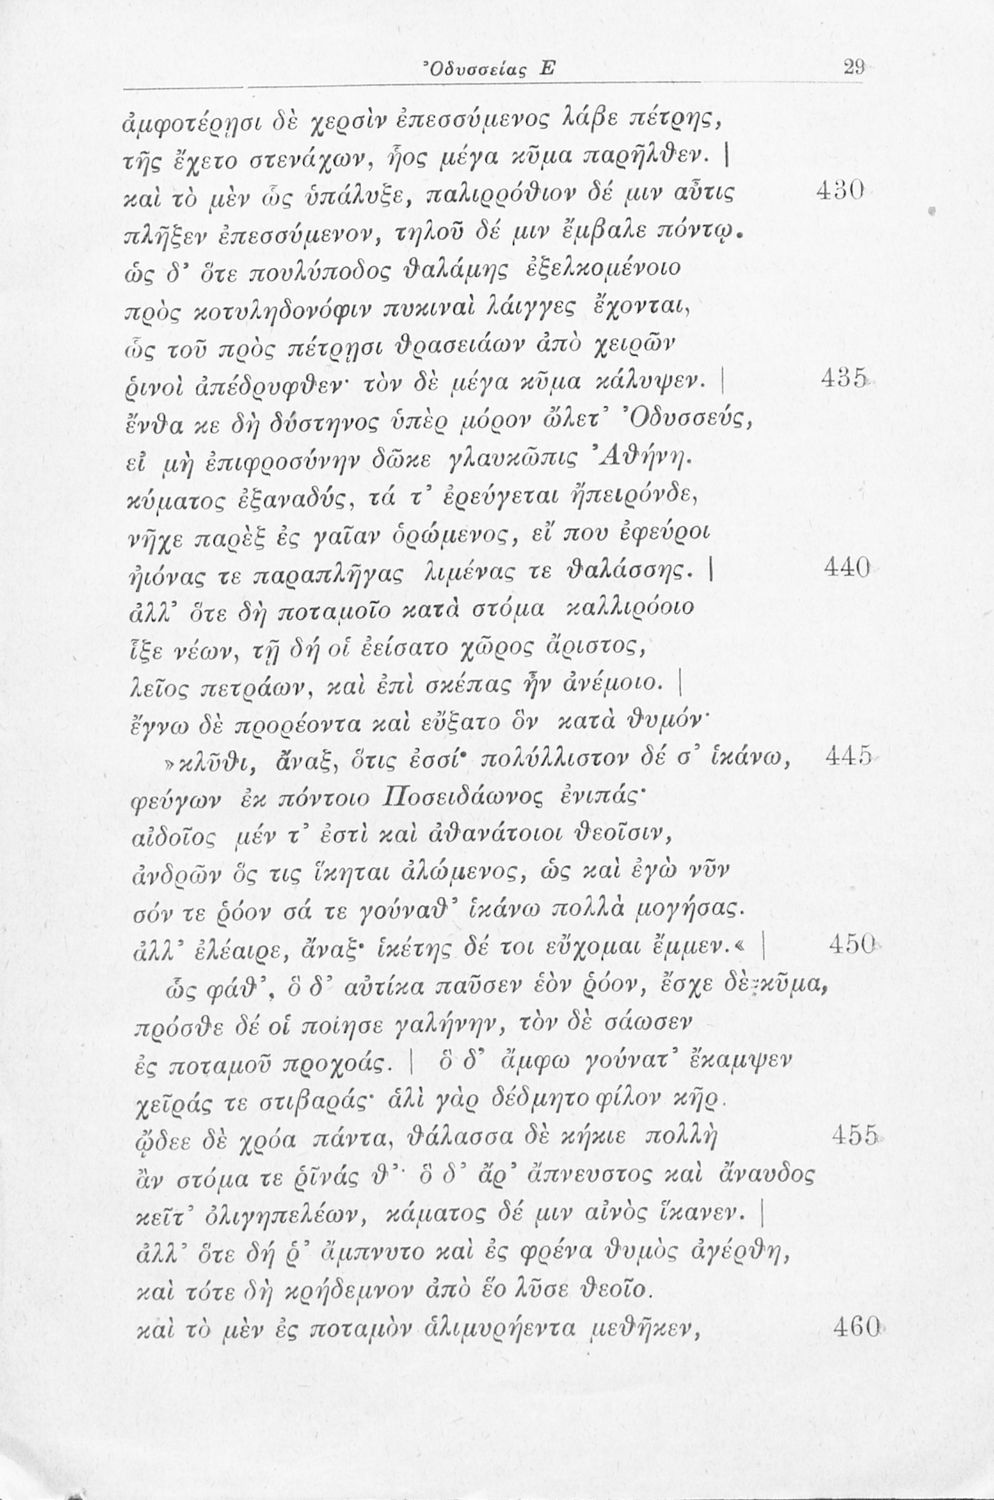 Ὀδυσσείας Ε 29
ἀμφοτέρῃσι δὲ χερσὶν ἐπεσσύμενος λάβε πέτρης,
τῆς ἔχετο στενάχων, ἧος μέγα κῦμα παρῆλθεν. |
καὶ τὸ μὲν ὣς ὑπάλυξε, παλιρρόθιον δέ μιν αὖτις 430
πλῆξεν ἐπεσσύμενον, τηλοῦ δέ μιν ἔμβαλε πόντῳ.
ὡς δ' ὅτε πουλύποδος θαλάμης ἐξελκομένοιο
πρὸς κοτυληδονόφιν πυκιναὶ λάιγγες ἔχονται,
ὣς τοῦ πρὸς πέτρῃσι θρασειάων ἀπὸ χειρῶν
ῥινοὶ ἀπέδρυφθεν· τὸν δὲ μέγα κῦμα κάλυψεν. | 435
ἔνθα κε δὴ δύστηνος ὑπὲρ μόρον ὤλετ' Ὀδυσσεύς,
εἰ μὴ ἐπιφροσύνην δῶκε γλαυκῶπις Ἀθήνη.
κύματος ἐξαναδύς, τά τ' ἐρεύγεται ἤπειρόνδε,
νῆχε παρὲξ ἐς γαῖαν ὁρώμενος, εἴ που ἐφεύροι
ἠιόνας τε παραπλῆγας λιμένας τε θαλάσσης. | 440
ἀλλ' ὅτε δὴ ποταμοῖο κατὰ στόμα καλλιρόοιο
ἷξε νέων, τῇ δή οἱ ἐείσατο χῶρος ἄριστος,
λεῖος πετράων, καὶ ἐπὶ σκέπας ἦν ἀνέμοιο. |
ἔγνω δὲ προρέοντα καὶ εὔξατο ὃν κατὰ θυμόν·
»κλῦθι, ἄναξ, ὅτις ἐσσί· πολύλλιστον δέ σ' ἱκάνω, 445
φεύγων ἐκ πόντοιο Ποσειδάωνος ἐνιπάς·
αἰδοῖος μέν τ' ἐστὶ καὶ ἀθανάτοισι θεοῖσιν,
ἀνδρῶν ὅς τις ἵκηται ἀλώμενος, ὡς καὶ ἐγὼ νῦν
σόν τε ῥόον σά τε γούναθ' ἱκάνω πολλὰ μογήσας.
ἀλλ' ἐλέαιρε, ἄναξ· ἱκέτης δέ τοι εὔχομαι ἔμμεν.« | 450
ὣς φάθ', ὃ δ' αὐτίκα παῦσεν ἑὸν ῥόον, ἔσχε δὲ κῦμα,
πρόσθε δέ οἱ ποίησε γαλήνην, τὸν δὲ σάωσεν
ἐς ποταμοῦ προχοάς. | ὃ δ' ἄμφω γούνατ' ἔκαμψεν
χεῖράς τε στιβαράς· ἁλὶ γὰρ δέδμητο φίλον κῆρ.
ᾤδεε δὲ χρόα πάντα, θάλασσα δὲ κήκιε πολλὴ 455
ἂν στόμα τε ῥῖνάς θ'· ὃ δ' ἄρ' ἄπνευστος καὶ ἄναυδος
κεῖτ' ὀλιγηπελέων, κάματος δέ μιν αἰνὸς ἵκανεν. |
ἀλλ' ὅτε δή ῥ' ἄμπνυτο καὶ ἐς φρένα θυμὸς ἀγέρθη,
καὶ τότε δὴ κρήδεμνον ἀπὸ ἕο λῦσε θεοῖο.
καὶ τὸ μὲν ἐς ποταμὸν ἁλιμυρήεντα μεθῆκεν, 460